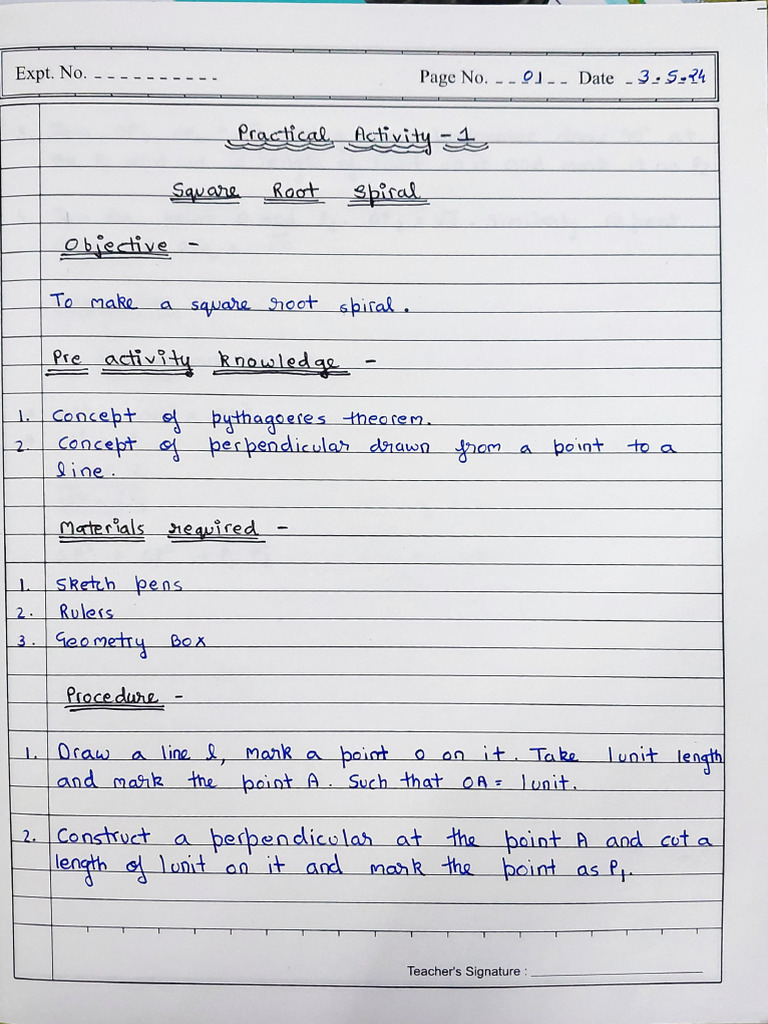 Expt. No. ----------- Page No. --01-- Date -3-5-24
Practical Activity-1
Square Root Spiral
Objective -
To make a square root spiral.
Pre activity knowledge -
1. Concept of pythagoeres theorem.
2. Concept of perpendicular drawn from a point to a
line.
Materials required -
1. Sketch pens
2. Rulers
3. Geometry Box
Procedure -
1. Draw a line l, mark a point O on it. Take 1unit length
and mark the point A. Such that OA = 1unit.
2. Construct a perpendicular at the point A and cut a
length of 1unit on it and mark the point as P₁.
Teacher's Signature : ____________________